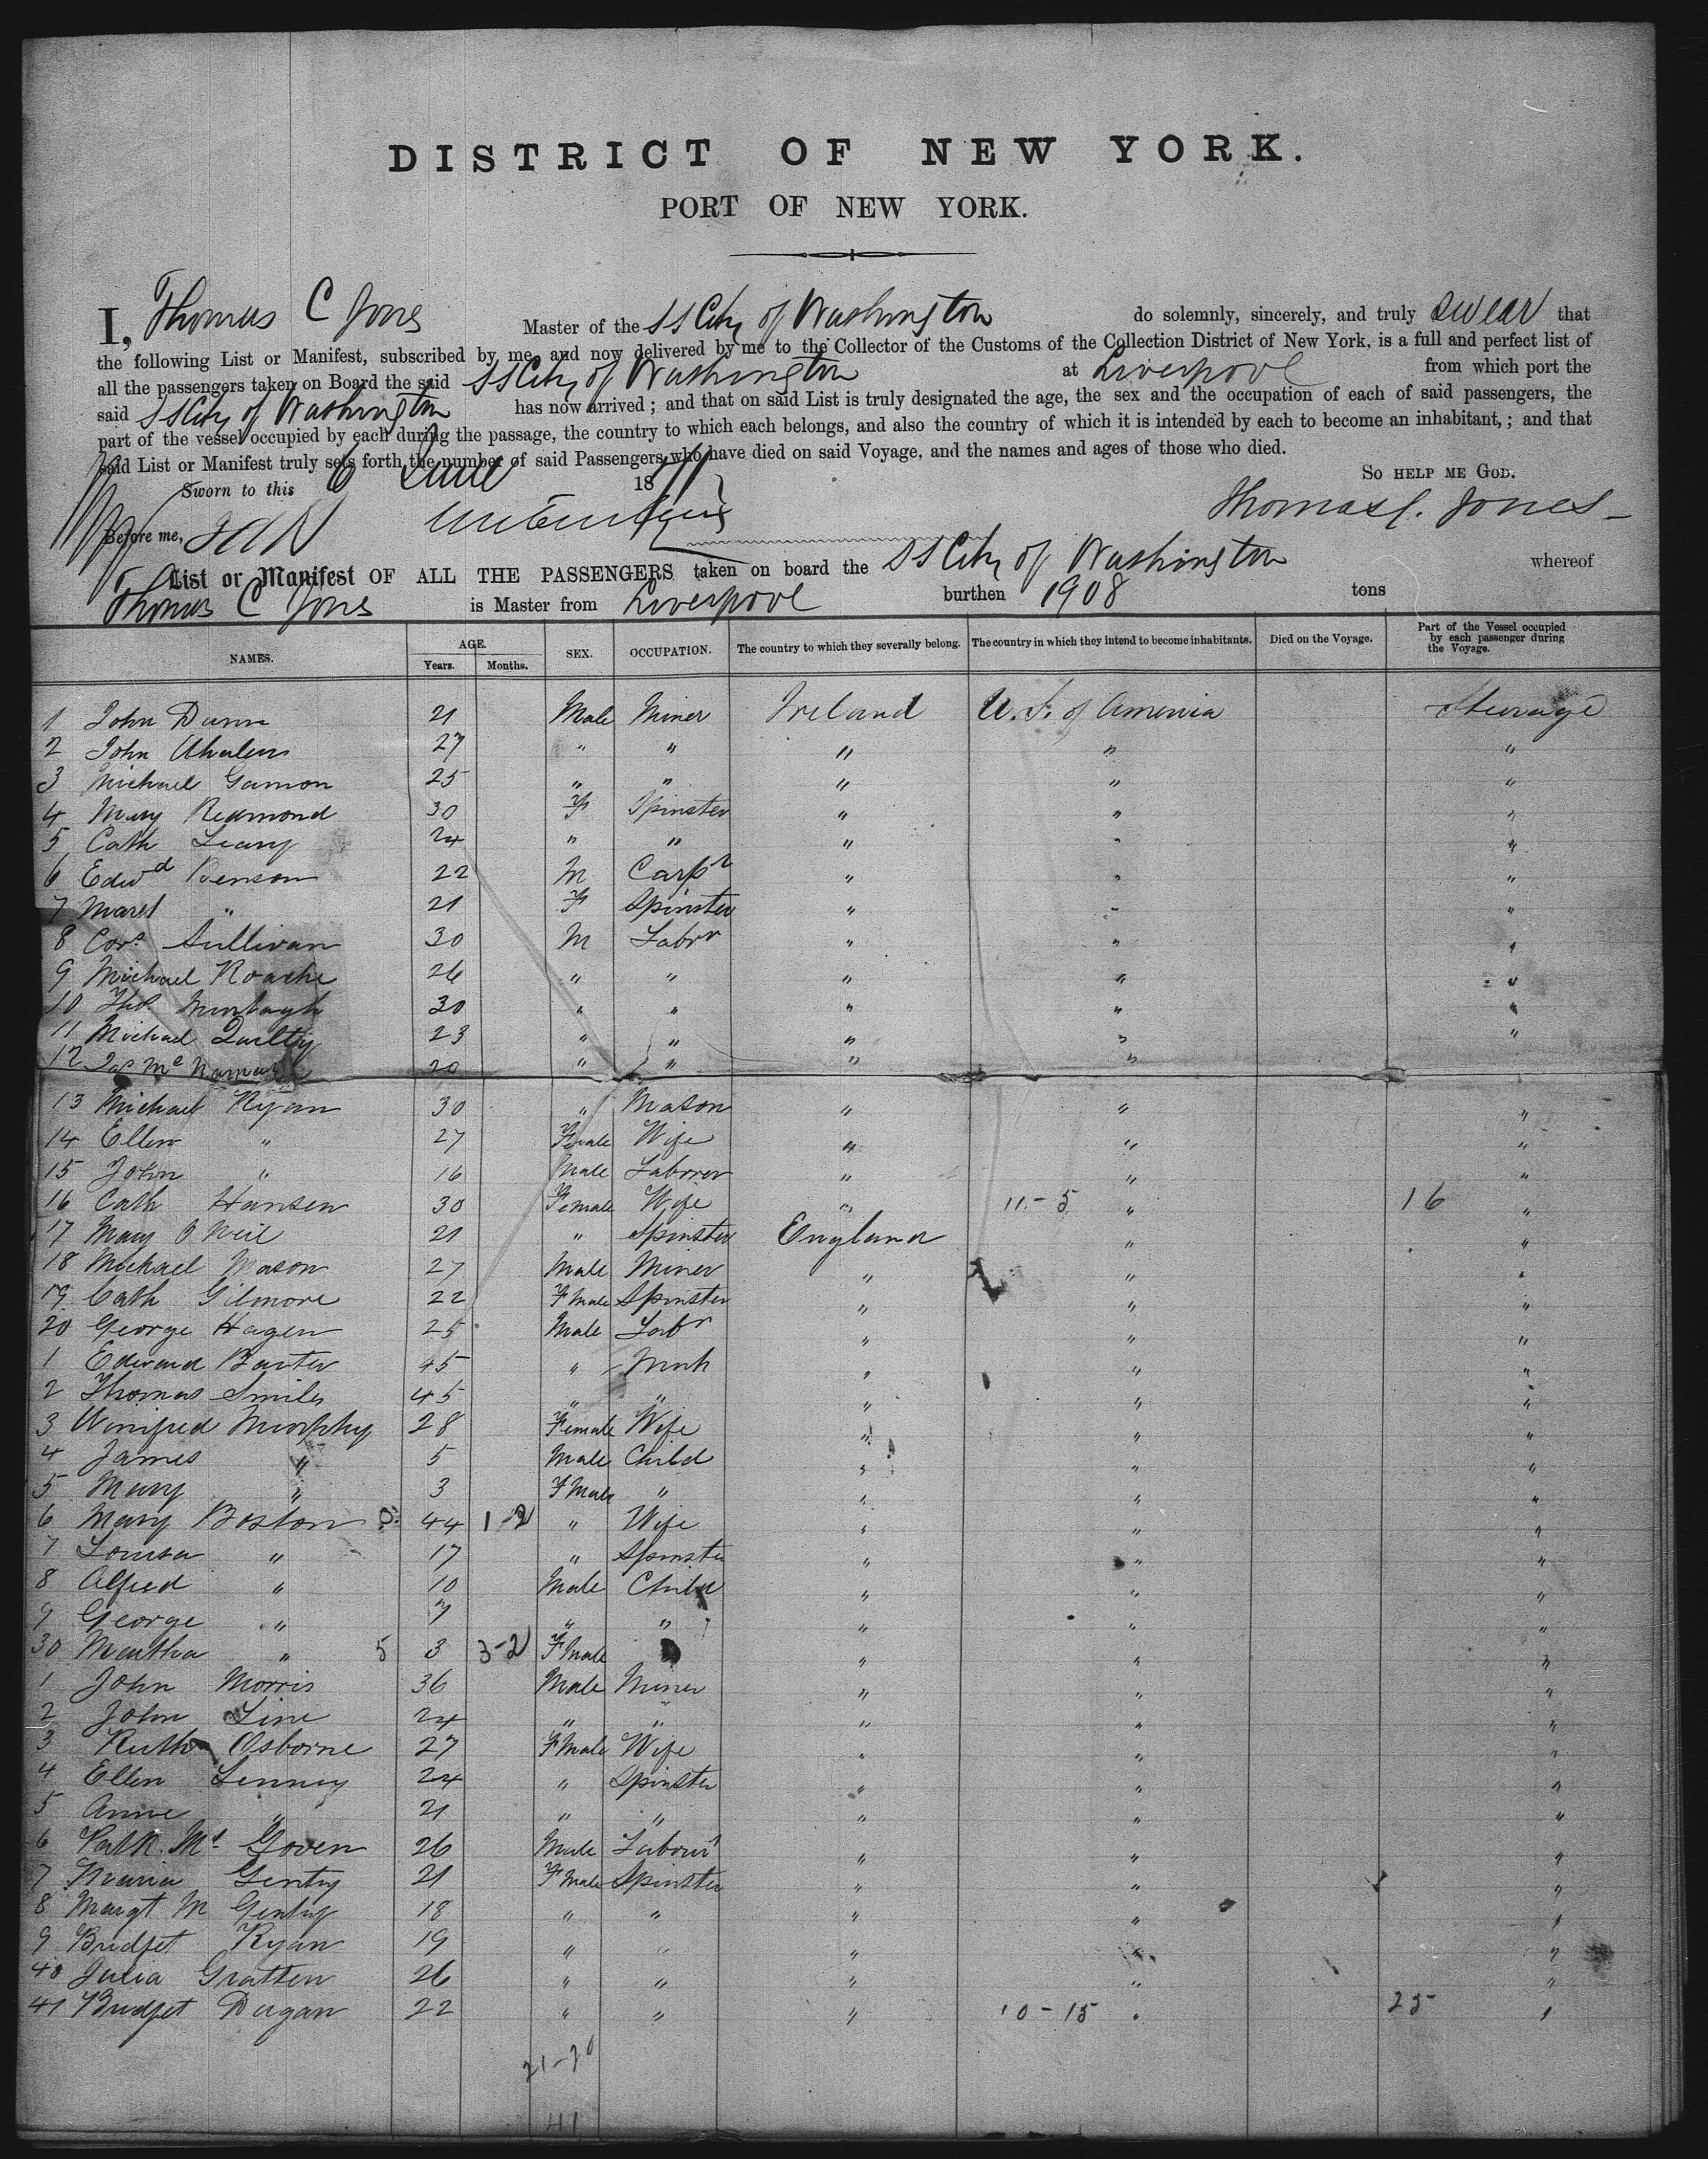 DISTRICT OF NEW YORK.
PORT OF NEW YORK.
I, Thomas C Jones Master of the SS City of Washington do solemnly, sincerely, and truly swear that
the following List or Manifest, subscribed by me, and now delivered by me to the Collector of the Customs of the Collection District of New York, is a full and perfect list of
all the passengers taken on Board the said SS City of Washington at Liverpool from which port the
said SS City of Washington has now arrived; and that on said List is truly designated the age, the sex and the occupation of each of said passengers, the
part of the vessel occupied by each during the passage, the country to which each belongs, and also the country of which it is intended by each to become an inhabitant,; and that
said List or Manifest truly sets forth the number of said Passengers who have died on said Voyage, and the names and ages of those who died.
Sworn to this 6 June 1871 So HELP ME GOD.
Before me, Thomas C. Jones
List or Manifest OF ALL THE PASSENGERS taken on board the SS City of Washington whereof
Thomas C Jones is Master from Liverpool burthen 1908 tons
NAMES. AGE. Years. Months. SEX. OCCUPATION. The country to which they severally belong. The country in which they intend to become inhabitants. Died on the Voyage. Part of the Vessel occupied by each passenger during the Voyage.
1 John Dunn 21 Male Miner Ireland U. S. of America Steerage
2 John Whalen 27 " " " " "
3 Michael Gamon 25 " " " " "
4 Mary Redmond 30 F Spinster " " "
5 Cath Leary 24 " " " " "
6 Edwd 22 M Carpr " " "
7 Margt " 21 F Spinster " " "
8 Cors Sullivan 30 M Labrr " " "
9 Michael Roache 26 " " " " "
10 Thos Murtagh 30 " " " " "
11 Michael Quilty 23 " " " " "
12 Jas McNamara 20 " " " "
13 Michael Ryan 30 " Mason " " "
14 Ellen " 27 Female Wife " " "
15 John " 16 Male Laborer " " "
16 Cath Hansen 30 Female Wife " 11-5 " 16 "
17 Mary O Neil 21 " Spinster England " "
18 Michael Mason 27 Male Miner " " "
19 Cath Gilmore 22 F Male Spinster " " "
20 George Hagen 25 Male Labr " " "
1 Edward Baxter 45 " " " "
2 Thomas Smiles 45 " " " " "
3 Winifred Murphy 28 Female Wife " " "
4 James " 5 Male Child " " "
5 Mary " 3 F Male " " " "
6 Mary Boston 44 1-2 " Wife " " "
7 Louisa " 17 " Spinster " " "
8 Alfred " 10 Male Child " " "
9 George " 7 " " " " "
30 Martha " 5 3 3-2 F Male " " "
1 John Morris 36 Male Miner " " "
2 John Line 24 " " " " "
3 Ruth Osborne 27 F Male Wife " " "
4 Ellen Lenney 24 " Spinster " " "
5 Anne " 21 " " " " "
6 Patk Mc Goven 26 Male Labour " " "
7 Maria Genty 21 F Male Spinster " " "
8 Margt M Genty 18 " " " " "
9 Bridget Ryan 19 " " " " "
40 Julia Gratten 26 " " " " "
41 Bridget Dugan 22 " " " 10-15 " 25 "
21-20
41